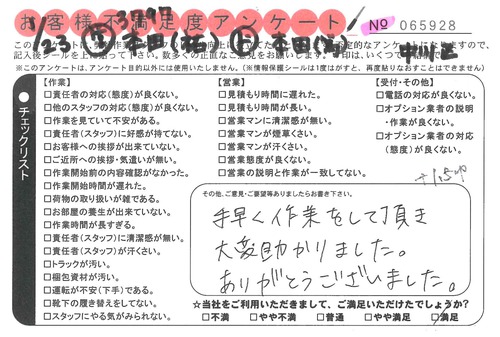 お客様不満足度アンケート
No 065928
1/23
中川区
※このアンケートは、アンケート目的以外には使用いたしません。(※情報保護シールは1度はがすと、再度貼りなおすことはできません)
チェックリスト
【作業】
□責任者の対応(態度)が良くない。
□他のスタッフの対応(態度)が良くない。
□作業を見ていて不安がある。
□責任者(スタッフ)に好感が持てない。
□お客様への挨拶が出来ていない。
□ご近所への挨拶・気遣いが無い。
□作業開始前の内容確認がなかった。
□作業開始時間が遅れた。
□荷物の取り扱いが雑である。
□お部屋の養生が出来ていない。
□作業時間が長すぎる。
□責任者(スタッフ)に清潔感が無い。
□責任者(スタッフ)が汗くさい。
□トラックが汚い。
□梱包資材が汚い。
□運転が不安(下手)である。
□靴下の履き替えをしてない。
□スタッフにやる気がみられない。
【営業】
□見積もり時間に遅れた。
□見積もり時間が長い。
□営業マンに清潔感が無い。
□営業マンが煙草くさい。
□営業マンが汗くさい。
□営業態度が良くない。
□営業の説明と作業が一致してない。
【受付・その他】
□電話の対応が良くない。
□オプション業者の説明
・作業が良くない。
□オプション業者の対応
(態度)が良くない。
その他、ご意見・ご要望等ありましたらお書き下さい。
手早く作業をして頂き
大変助かりました。
ありがとうございました。
☆当社をご利用いただきまして、ご満足いただけたでしょうか?
□不満 □やや不満 □普通 □やや満足 □満足